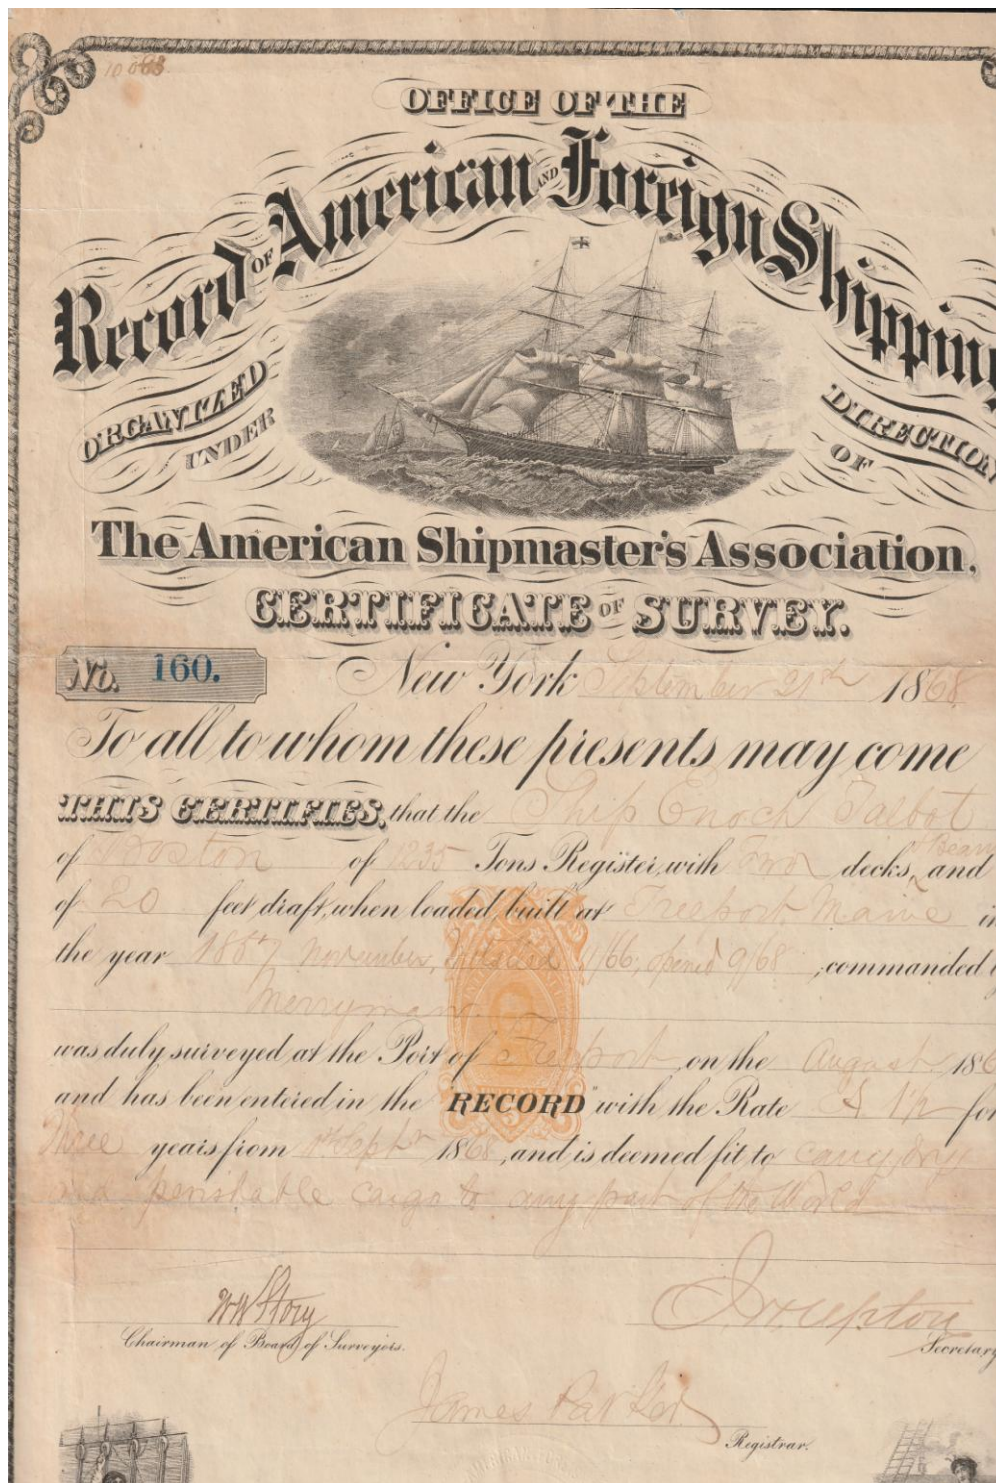 10
OFFICE OF THE
Record OF American AND Foreign Shipping
ORGANIZED UNDER
DIRECTION OF
The American Shipmaster's Association.
CERTIFICATE OF SURVEY.
No. 160.
New York September 21st 1868
To all to whom these presents may come
THIS CERTIFIES, that the Ship Enoch Talbot
of Boston of 1235 Tons Register, with Two decks, Beam and
of 20 feet draft, when loaded, built at Freeport Maine in
the year 1857 November, 1/66, opened 9/68, commanded
Merryman
was duly surveyed at the Port of Freeport on the August 186
and has been entered in the "RECORD" with the Rate A 1½ for
Three years from Sept 1868, and is deemed fit to carry dry
and perishable cargo to any part of the World
W W Story
Chairman of Board of Surveyors.
Secretary
James Parker
Registrar.